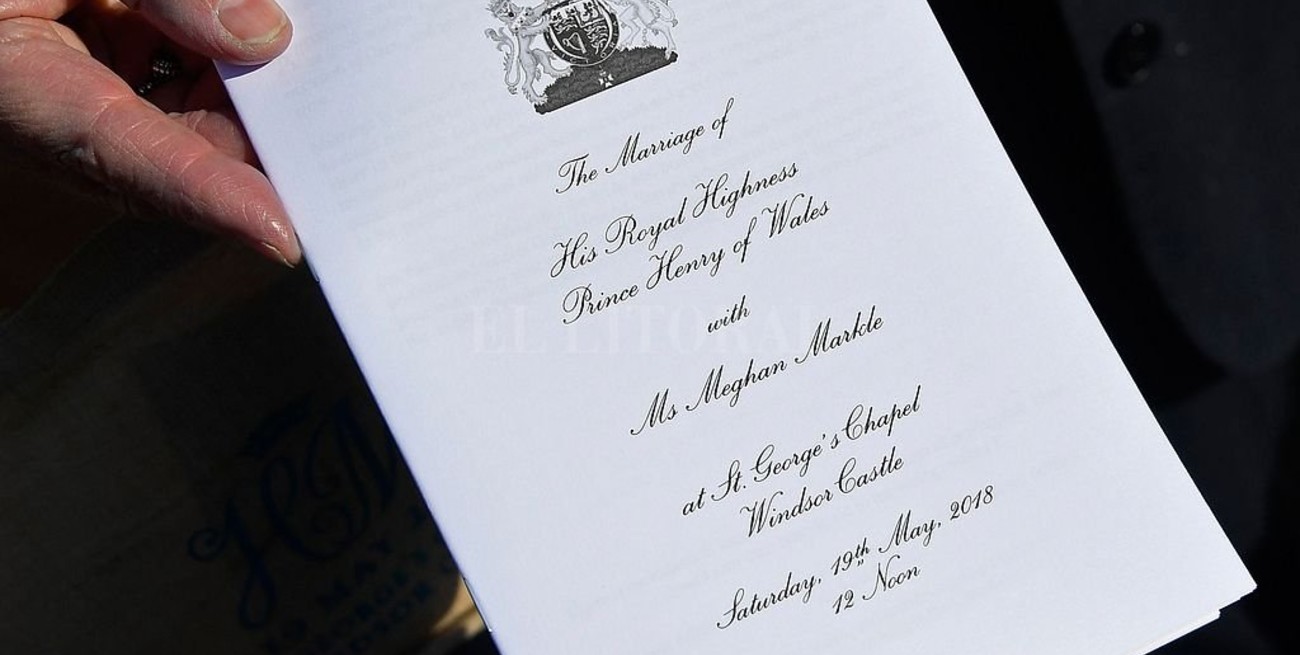 The Marriage of
His Royal Highness
Prince Henry of Wales
with
Ms Meghan Markle
at St. George's Chapel
Windsor Castle
Saturday, 19th May, 2018
12 Noon
EL LITORAL
MAY